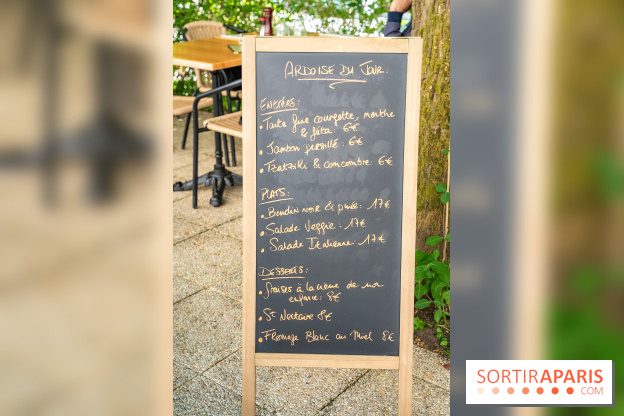 ARDOISE DU JOUR:
ENTRÉES:
• Tarte fine courgette, menthe
& féta: 6€
• Jambon persillé: 6€
• Tzatziki & concombre: 6€
PLATS:
• Boudin noir & purée: 17€
• Salade Veggie: 17€
• Salade Italienne 17€
DESSERTS:
• fraises à la crème de mon
enfance: 8€
• St Nectaire 8€
• Fromage Blanc au Miel 8€
SORTIRAPARIS
.COM